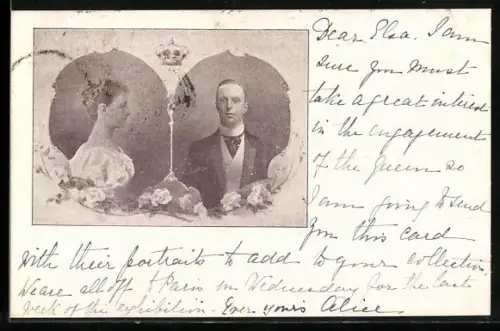 Dear Elsa. I am
sure you must
take a great interest
in the engagement
of the Queen so
I am going to send
you this card
with their portraits to add to your collection
We are all off to Paris on Wednesday for the last
week of the exhibition. Ever yours Alice